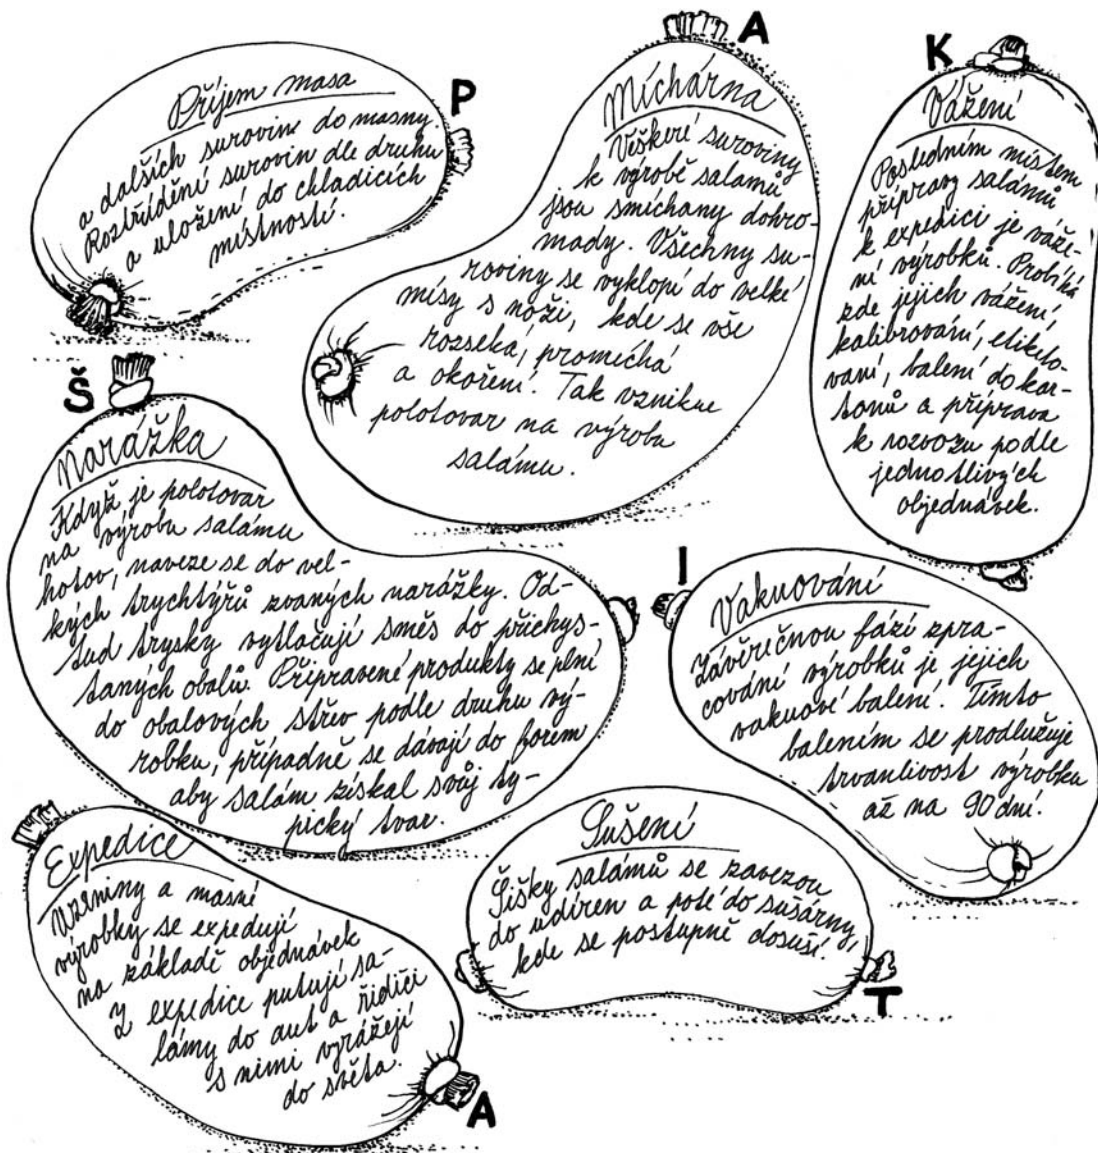 P
Příjem masa
a dalších surovin do masny.
Roztřídění surovin dle druhu
a uložení do chladicích
místností.
A
Míchárna
Veškeré suroviny
k výrobě salámů
jsou smíchany dohro-
mady. Všechny su-
roviny se vyklopí do velké
mísy s noži, kde se vše
rozseká, promíchá
a okoření. Tak vznikne
polotovar na výrobu
salámu.
K
Vážení
Posledním místem
přípravy salámů
k expedici je váže-
ní výrobků. Probíhá
zde jejich vážení,
kalibrování, etiketo-
vaní, balení do kar-
tonů a příprava
k rozvozu podle
jednotlivých
objednávek.
Š
Narážka
Když je polotovar
na výrobu salámu
hotov, naveze se do vel-
kých trychtýřů zvaných narážky. Od-
tud trysky vytlačují směs do přichys-
taných obalů. Připravené produkty se plní
do obalových střev podle druhu vý-
robku, případně se dávají do forem
aby salám získal svůj ty-
pický tvar.
I
Vakuování
Závěrečnou fází zpra-
cování výrobků je jejich
vakuové balení. Tímto
balením se prodlužuje
trvanlivost výrobku
až na 90 dní.
Expedice
Uzeniny a masné
výrobky se expedují
na základě objednávek
Z expedice putují sa-
lámy do aut a řidiči
s nimi vyrážejí
do světa.
A
Sušení
Šišky salámů se zavezou
do udíren a poté do sušárny,
kde se postupně dosuší.
T